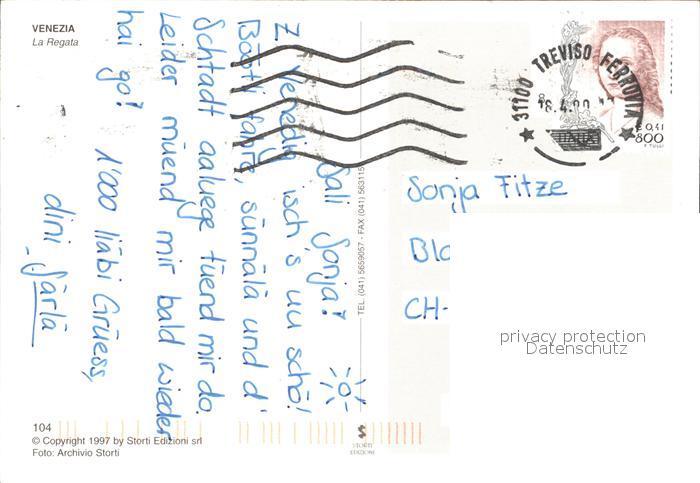 VENEZIA
La Regata
Sali Sonja!
Z Venedig isch's uu schö!
Böötli fahre, sünnälä und d'
Schtadt aaluege tüend mir do.
Leider müend mir bald wieder
hai go! 1'000 liäbi Grüess,
dini Särlä
TEL. (041) 5659057 - FAX (041) 563115
STORTI
EDIZIONI
31100 TREVISO FERROVIA
€ 0,41
800
Sonja Fitze
Blo
CH-
privacy protection
Datenschutz
104
© Copyright 1997 by Storti Edizioni srl
Foto: Archivio Storti